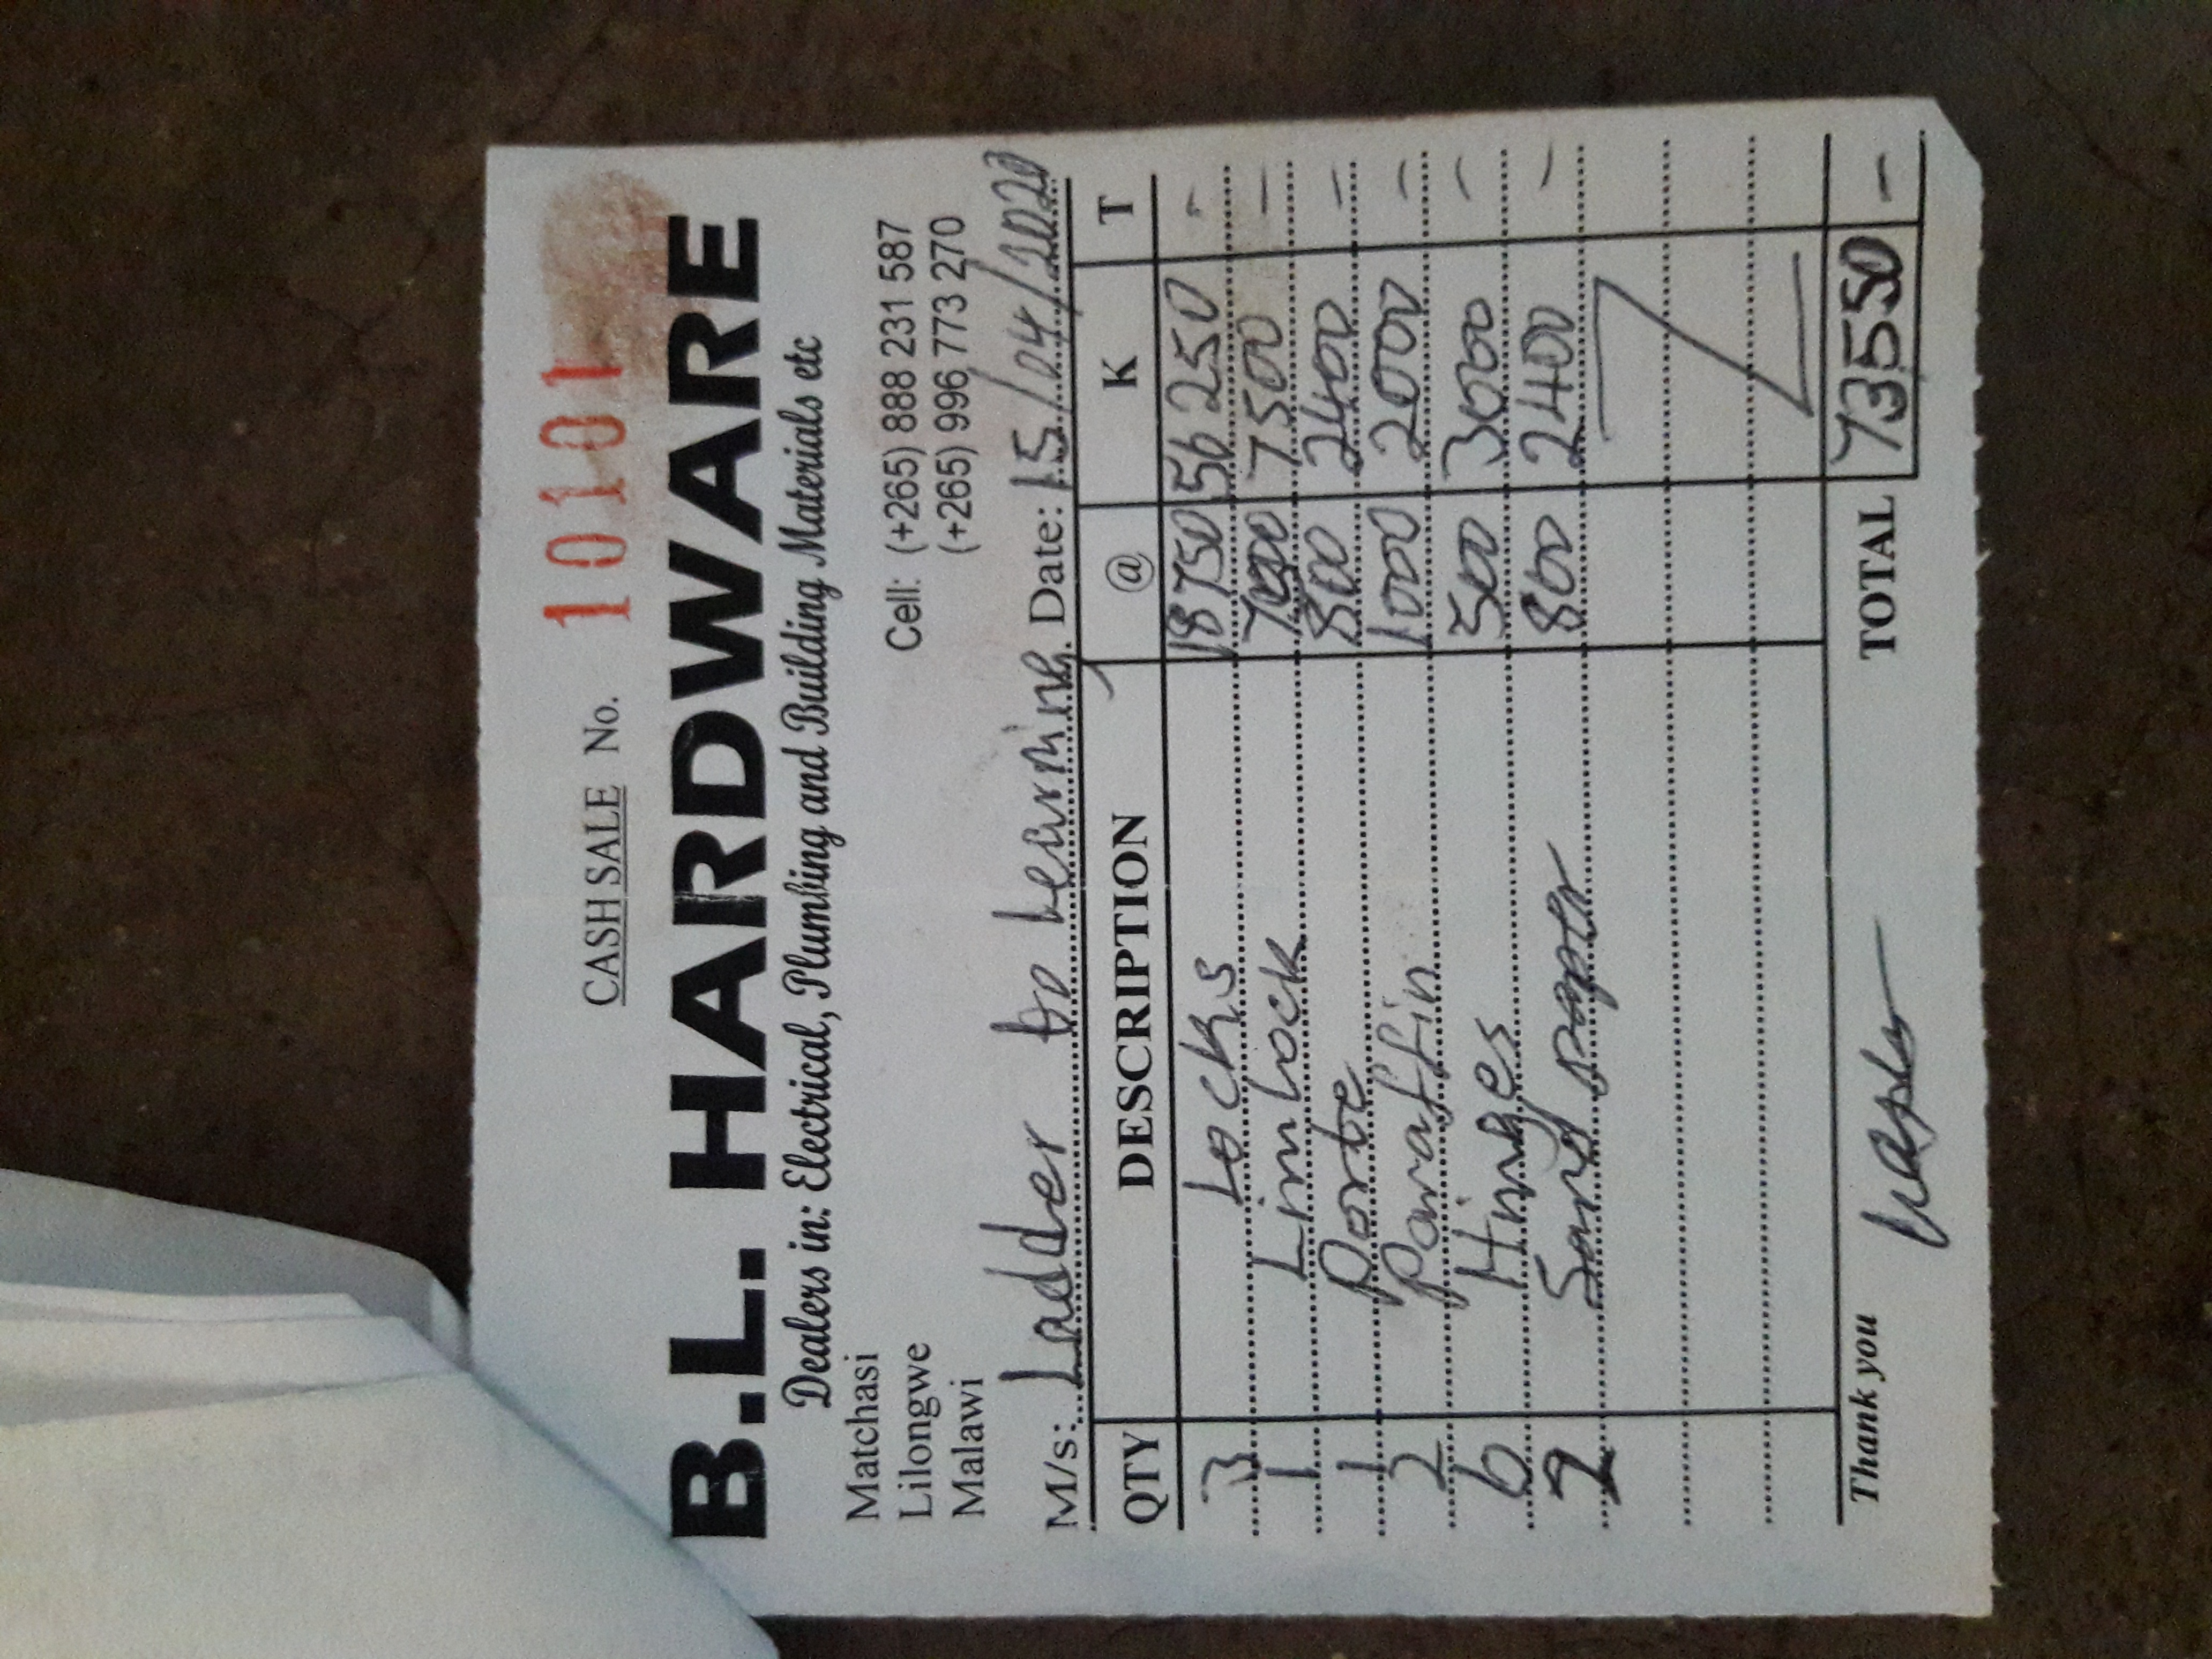 CASH SALE No. 10101
B.L. HARDWARE
Dealers in: Electrical, Plumbing and Building Materials etc
Matchasi
Lilongwe
Malawi
Cell: (+265) 888 231 587
(+265) 996 773 270
M/s: Ladder to learning Date: 15/04/2020
QTY DESCRIPTION @ K T
3 Locks 18750 56250 -
1 Limlock 7500 -
1 Porte 800 2400 -
2 Paraffin 1000 2000 -
6 Hinges 500 3000 -
2 Sand paper 800 2400 -
Thank you TOTAL 73550 -